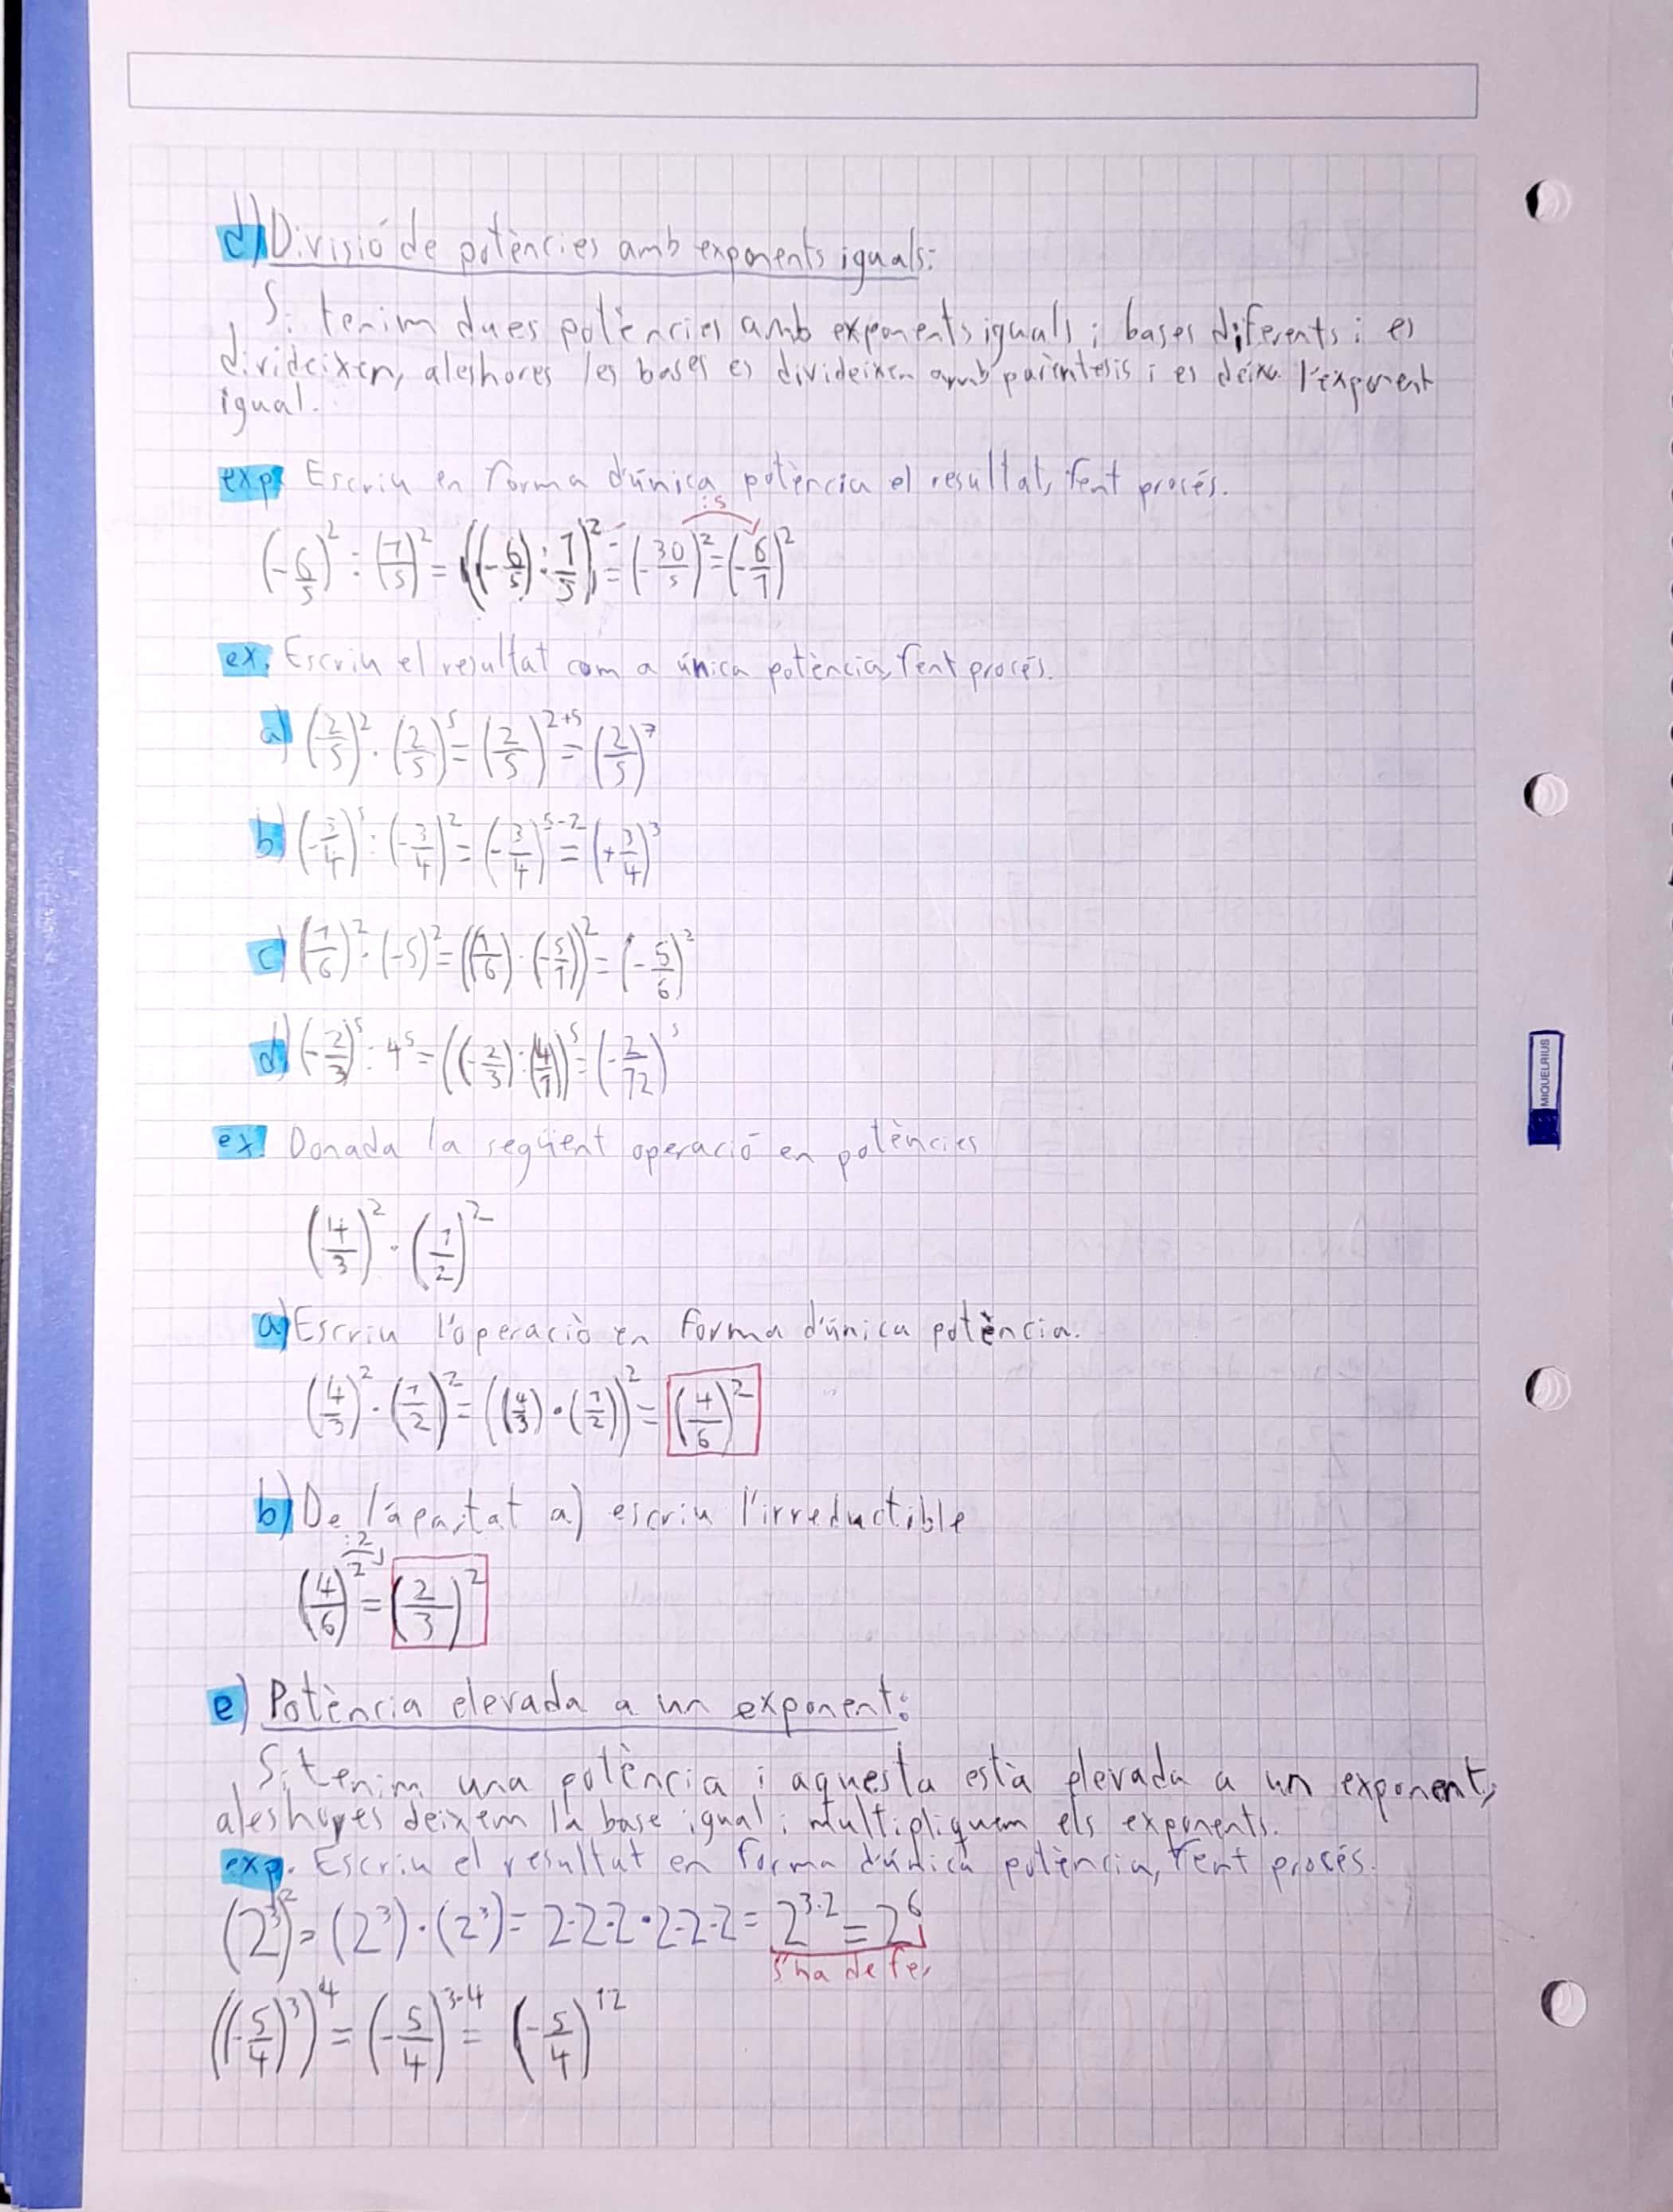 d) Divisió de potències amb exponents iguals:
Si tenim dues potències amb exponents iguals i bases diferents i es
divideixen, aleshores les bases es divideixen amb parèntesis i es deixa l'exponent
igual.
exp. Escriu en forma d'única potència el resultat, fent procés.
:5
(-6/5)² : (1/5)² = ((-6/5) : 1/5)² = (-30/5)² = (-6/1)²
ex. Escriu el resultat com a única potència, fent procés.
a) (2/5)² · (2/5)⁵ = (2/5)²⁺⁵ = (2/5)⁷
b) (-3/4)⁵ : (-3/4)² = (-3/4)⁵⁻² = (+3/4)³
c) (1/6)² · (-5)² = ((1/6) · (-5/1))² = (-5/6)²
d) (-2/3)⁵ : 4⁵ = ((-2/3) : (4/1))⁵ = (-2/12)⁵
ex. Donada la següent operació en potències
(4/3)² · (1/2)²
a) Escriu l'operaciò en forma d'única potència.
(4/3)² · (1/2)² = ((4/3) · (1/2))² = (4/6)²
b) De l'apartat a) escriu l'irreductible
:2
(4/6)² = (2/3)²
e) Potència elevada a un exponent:
Si tenim una potència i aquesta està elevada a un exponent,
aleshores deixem la base igual i multipliquem els exponents.
exp. Escriu el resultat en forma d'única potència, fent procés.
(2³)² = (2³) · (2³) = 2·2·2·2·2·2 = 2³·² = 2⁶
s'ha de fer
((-5/4)³)⁴ = (-5/4)³·⁴ = (-5/4)¹²
MIQUELRIUS